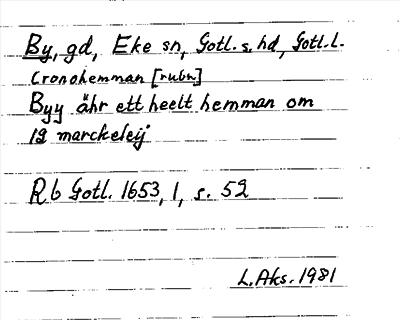 By, gd, Eke sn, Gotl. s. hd, Gotl. L.
Cronohemman [rubr.]
Byy ähr ett heelt hemman om
19 marckeleij
Rb Gotl. 1653, 1, s. 52
L. Aks. 1981